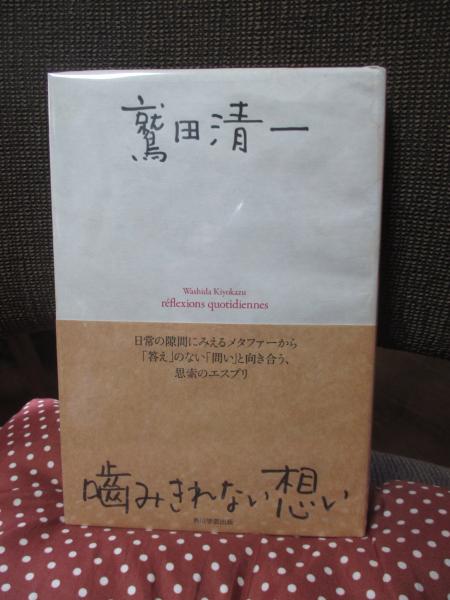 鷲田清一
Washida Kiyokazu
réflexions quotidiennes
日常の隙間にみえるメタファーから
「答え」のない「問い」と向き合う、
思索のエスプリ
噛みきれない想い
角川学芸出版